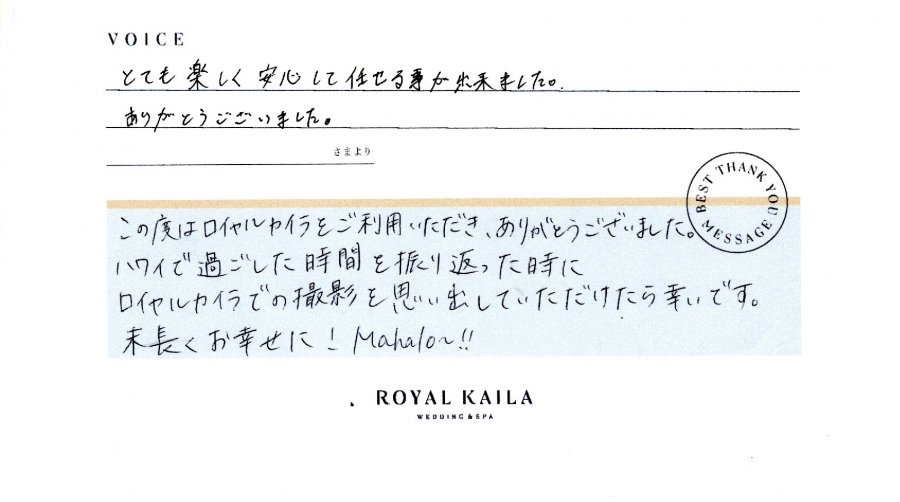 VOICE
とても楽しく安心して任せる事が出来ました。
ありがとうございました。
さまより
BEST THANK YOU MESSAGE
この度はロイヤルカイラをご利用いただき、ありがとうございました。
ハワイで過ごした時間を振り返った時に
ロイヤルカイラでの撮影を思い出していただけたら幸いです。
末長くお幸せに！Mahalo～!!
ROYAL KAILA
WEDDING & SPA